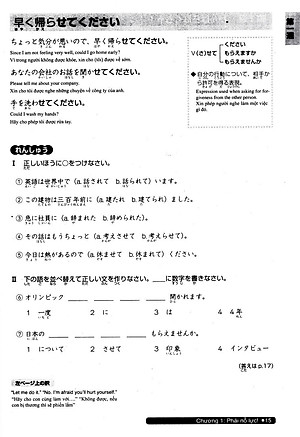 早く帰らせてください
ちょっと気分が悪いので、早く帰らせてください。
Since I am not feeling very well, could I go home early?
Vì trong người không được khỏe, xin cho (tôi) được về sớm.
あなたの会社のお話を聞かせてください。
Please tell me about your company.
Xin cho tôi được nghe những chuyện về công ty của anh.
手を洗わせてください。
Could I wash my hands?
Hãy cho phép tôi được rửa tay.
V(さ)せて
ください
もらえますか
もらえませんか
◆自分の行動について、相手から許可を得る表現。
Expression used when asking for forgiveness from the other person.
Xin phép người nghe làm một việc gì đó.
れんしゅう
Ⅰ 正しいほうに○をつけなさい。
① 英語は世界中で(a. 話されて b. 話られて)います。
② この建物は三百年前に(a. 建たれ b. 建てられ)ました。
③ 急に社員に(a. 辞まれた b. 辞められた)。
④ その話はもうちょっと(a. 考えさせて b. 考えらせて)。
⑤ 今日は熱があるので(a. 休ませて b. 休まれて)ください。
Ⅱ 下の語を並べ替えて正しい文を作りなさい。___に数字を書きなさい。
⑥ オリンピック ___ ___ ___ ___ 開かれます。
1 一度 2 に 3 は 4 4年
⑦ 日本の ___ ___ ___ ___ もらえませんか。
1 について 2 させて 3 印象 4 インタビュー
(答えは p.17)
左ページ上の訳
"Let me do it." "No. I'm afraid you'll hurt yourself."
"Hãy cho con cùng làm với...." "Không được, nếu
con bị thương thì sẽ phiền lắm"
Chương 1: Phải nỗ lực! 15